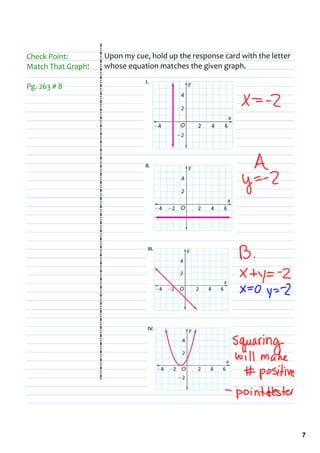 Check Point:
Match That Graph!
Pg. 263 # 8
Upon my cue, hold up the response card with the letter
whose equation matches the given graph.
I.
y
4
2
x
-4 O 2 4 6
-2
x=-2
II.
y
4
2
x
-4 -2 O 2 4 6
A
y=-2
III.
y
4
2
x
-4 -2 O 2 4 6
B.
x+y=-2
x=0 y=-2
IV.
y
4
2
x
-4 -2 O 2 4 6
-2
Squaring
will make
# positive
- point tester
7